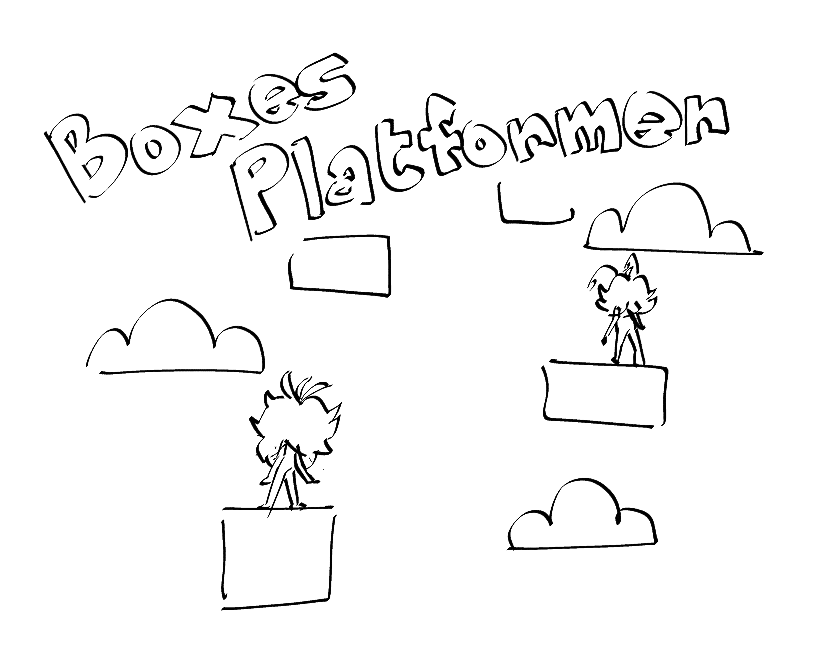 Boxes
Platformer